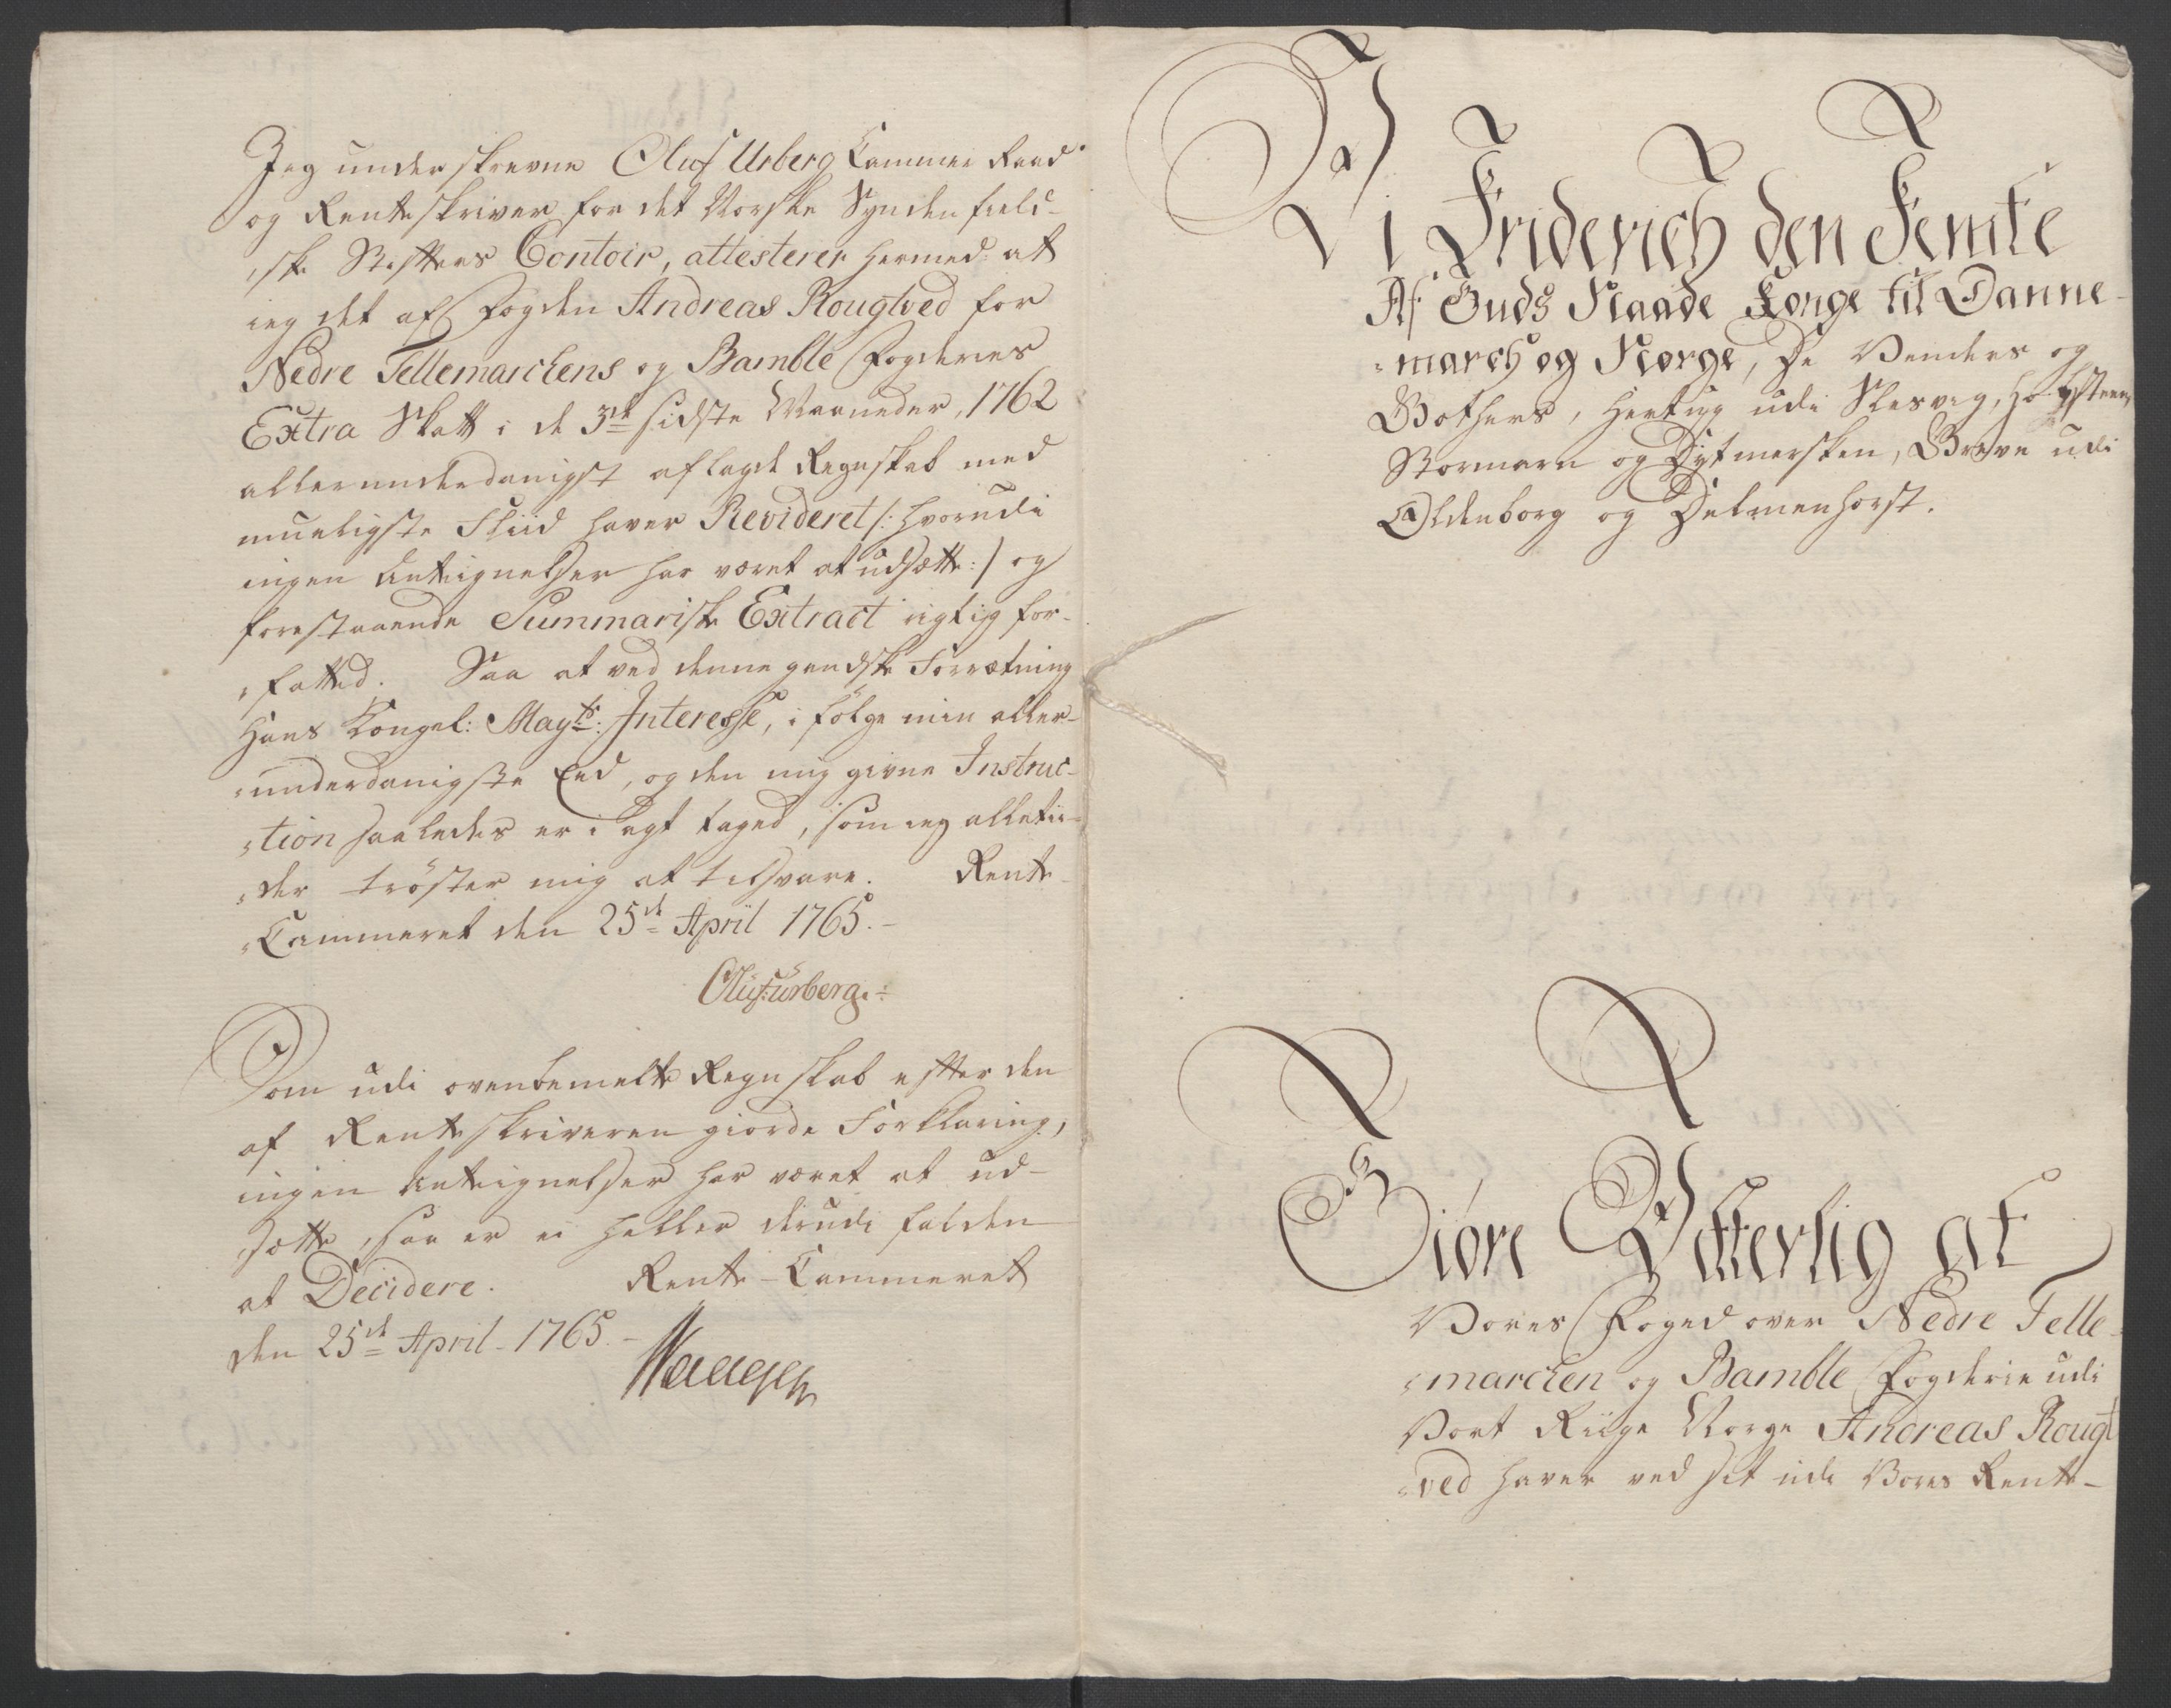 Jeg underskrevne Oluf Urberg Cammer Raad
og Renteskriver for det Norske Syndenfield-
ske Stifters Contoir, attesterer hermed at
ieg det af Fogden Andreas Rougtved for
Nedre Tellemarckens og Bamble Fogderies
Extra Skatt i de 3de sidste Maaneder, 1762
allerunderdanigst aflagde Regnskab med
mueligste Fliid haver Revideret /: hvorudi
ingen Antegnelser har været at udsætte :/ og
forestaaende Summariske Extract rigtig for-
fatted. Saa at ved denne gandske Forrætning
Hans Kongel: Mayts: Interesse, i følge min aller-
underdanigste Eed, og den mig givne Instruc-
tion saaledes er i agt taged, som ieg alletii-
der trøster mig at tilsvare. Rente-
Cammeret den 25de April 1765.-
Oluf Urberg.
Som udi ovenbemelte Regnskab efter den
af Renteskriveren giorde Forklaring,
ingen Antegnelser har været at ud-
sætte, saa er ei heller derudi falden
at Decidere. Rente-Cammeret
den 25de April 1765.-
Vi Friderich den Femte
Af Guds Naade Konge til Danne-
march og Norge, De Venders og
Gothers, Hertug udi Slesvig, Holsteen,
Stormarn og Dytmersken, Greve udi
Oldenborg og Delmenhorst.
Giøre Vitterlig at
Vores Foged over Nedre Telle-
marcken og Bamble Fogderie udi
Vort Riige Norge Andreas Rougt
ved haver ved sit udi Vores Rente-